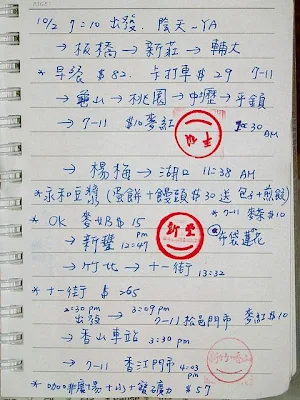 10/2 7:10 出發. 陰天~YA
→ 板橋 → 新莊 → 輔大
* 早餐 $82. 卡打車 $29 7-11
→ 龜山 → 桃園 → 中壢 → 平鎮
→ 7-11 $10 麥紅 30 AM
→ 楊梅 → 湖口 11:38 AM
*永和豆漿 (蛋餅+饅頭$30送包子+煎餃)
* OK $15 * 7-11 麥茶 $10
新豐
→ 新豐 pm 12:49 布袋蓮花
→ 竹北 → 十一街 13:32
* 十一街 $265
2:30 pm 出發 → 3:09 pm 7-11 門市 麥紅 $10
→ 香山車站 3:30 pm
→ 7-11 香江門市 4:03 pm
* 廣場 + 水 + 寶礦力 $57